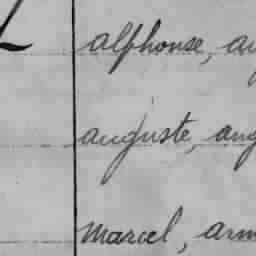 alphonse, au
auguste, aug
marcel, arm